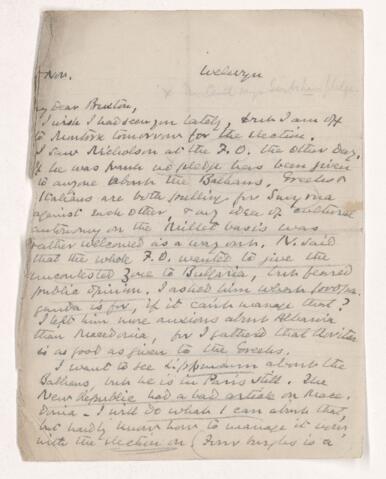 Nov. Welwyn
My dear Buxton,
I wish I had seen you lately, but I am off
to Montrose tomorrow for the election.
I saw Nicholson at the F.O. the other day.
If he was frank no pledge has been given
to anyone about the Balkans. Greeks &
Italians are both pulling for Smyrna
against each other, & any idea of cultural
autonomy on the Millet basis was
rather welcomed as a way out. N. said
that the whole F.O. wanted to give the
uncontested Zone to Bulgaria, but feared
public opinion. I asked him what propa-
ganda is for, if it can't manage that?
I left him more anxious about Albania
than Macedonia, for I gathered that
is as good as given to the Greeks.
I want to see Lippmann about the
Balkans, but he is in Paris still. The
New Republic had a bad article on Mace-
donia - I will do what I can about that,
but hardly know how to manage it even
with the election on (Four burghs is a